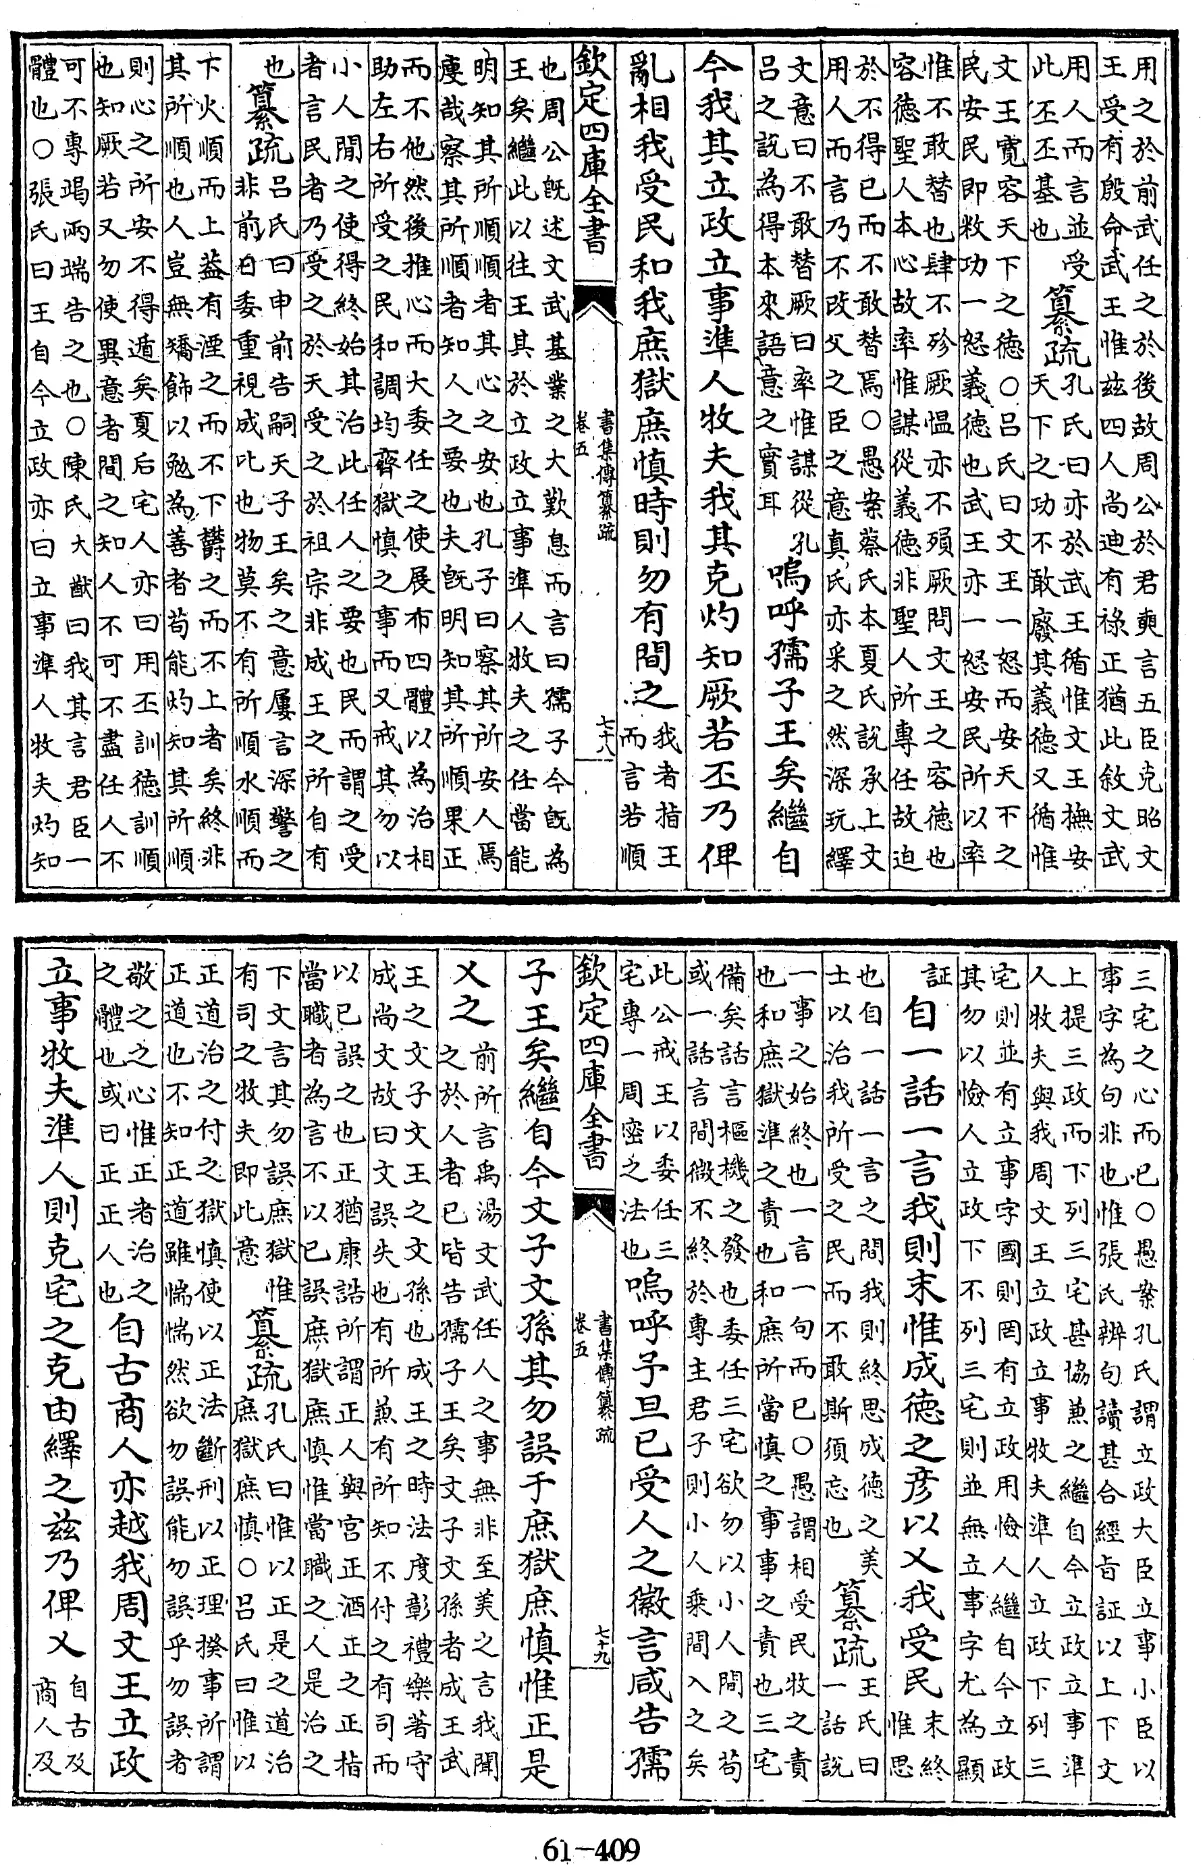 用之於前武任之於後故周公於君奭言五臣克昭文
王受有殷命武王惟兹四人尚迪有祿正猶此敘文武
用人而言並受
此丕丕基也
纂疏
孔氏曰亦於武王循惟文王撫安
天下之功不敢廢其義德又循惟
文王寬容天下之德○吕氏曰文王一怒而安天下之
民安民即敉功一怒義德也武王亦一怒安民所以率
惟不敢替也肆不殄厥愠亦不殞厥問文王之容德也
容德聖人本心故率惟謀從義德非聖人所專任故迫
於不得已而不敢替焉○愚案蔡氏本夏氏說承上文
用人而言乃不改父之臣之意真氏亦采之然深玩繹
文意曰不敢替厥曰率惟謀從孔
吕之說為得本來語意之實耳
嗚呼孺子王矣繼自
今我其立政立事準人牧夫我其克灼知厥若丕乃俾
亂相我受民和我庶獄庶慎時則勿有間之
我者指王
而言若順
欽定四庫全書
書集傳纂疏
卷五
七十八
也周公既述文武基業之大歎息而言曰孺子今既為
王矣繼此以往王其於立政立事準人牧夫之任當能
明知其所順順者其心之安也孔子曰察其所安人焉
廋哉察其所順者知人之要也夫既明知其所順果正
而不他然後推心而大委任之使展布四體以為治相
助左右所受之民和調均齊獄慎之事而又戒其勿以
小人間之使得終始其治此任人之要也民而謂之受
者言民者乃受之於天受之於祖宗非成王之所自有
也
纂疏
吕氏曰申前告嗣天子王矣之意屢言深警之
非前日委重視成比也物莫不有所順水順而
下火順而上葢有湮之而不下鬱之而不上者矣終非
其所順也人豈無矯飾以勉為善者苟能灼知其所順
則心之所安不得遁矣夏后宅人亦曰用丕訓德訓順
也知厥若又勿使異意者間之知人不可不盡任人不
可不專竭兩端告之也○陳氏大猷曰我其言君臣一
體也○張氏曰王自今立政亦曰立事準人牧夫灼知
三宅之心而已○愚案孔氏謂立政大臣立事小臣以
事字為句非也惟張氏辨句讀甚合經旨証以上下文
上提三政而下列三宅甚協兼之繼自今立政立事準
人牧夫與我周文王立政立事牧夫準人立政下列三
宅則並有立事字國則罔有立政用憸人繼自今立政
其勿以憸人立政下不列三宅則並無立事字尤為顯
証
自一話一言我則末惟成德之彦以乂我受民
末終
惟思
也自一話一言之間我則終思成德之美
士以治我所受之民而不敢斯須忘也
纂疏
王氏曰
一話說
一事之始終也一言一句而已○愚謂相受民牧之責
也和庶獄準之責也和庶所當慎之事事之責也三宅
備矣話言樞機之發也委任三宅欲勿以小人間之苟
或一話言間微不終於專主君子則小人乘間入之矣
此公戒王以委任三
宅專一周密之法也
嗚呼予旦已受人之徽言咸告孺
欽定四庫全書
書集傳纂疏
卷五
七十九
子王矣繼自今文子文孫其勿誤于庶獄庶慎惟正是
乂之
前所言禹湯文武任人之事無非至美之言我聞
之於人者已皆告孺子王矣文子文孫者成王武
王之文子文王之文孫也成王之時法度彰禮樂著守
成尚文故曰文誤失也有所兼有所知不付之有司而
以已誤之也正猶康誥所謂正人與宫正酒正之正指
當職者為言不以已誤庶獄庶慎惟當職之人是治之
下文言其勿誤庶獄惟
有司之牧夫即此意
纂疏
孔氏曰惟以正是之道治
庶獄庶慎○吕氏曰惟以
正道治之付之獄慎使以正法斷刑以正理揆事所謂
正道也不知正道雖惴惴然欲勿誤能勿誤乎勿誤者
敬之之心惟正者治之
之體也或曰正正人也
自古商人亦越我周文王立政
立事牧夫準人則克宅之克由繹之兹乃俾乂
自古及
商人及
61-409